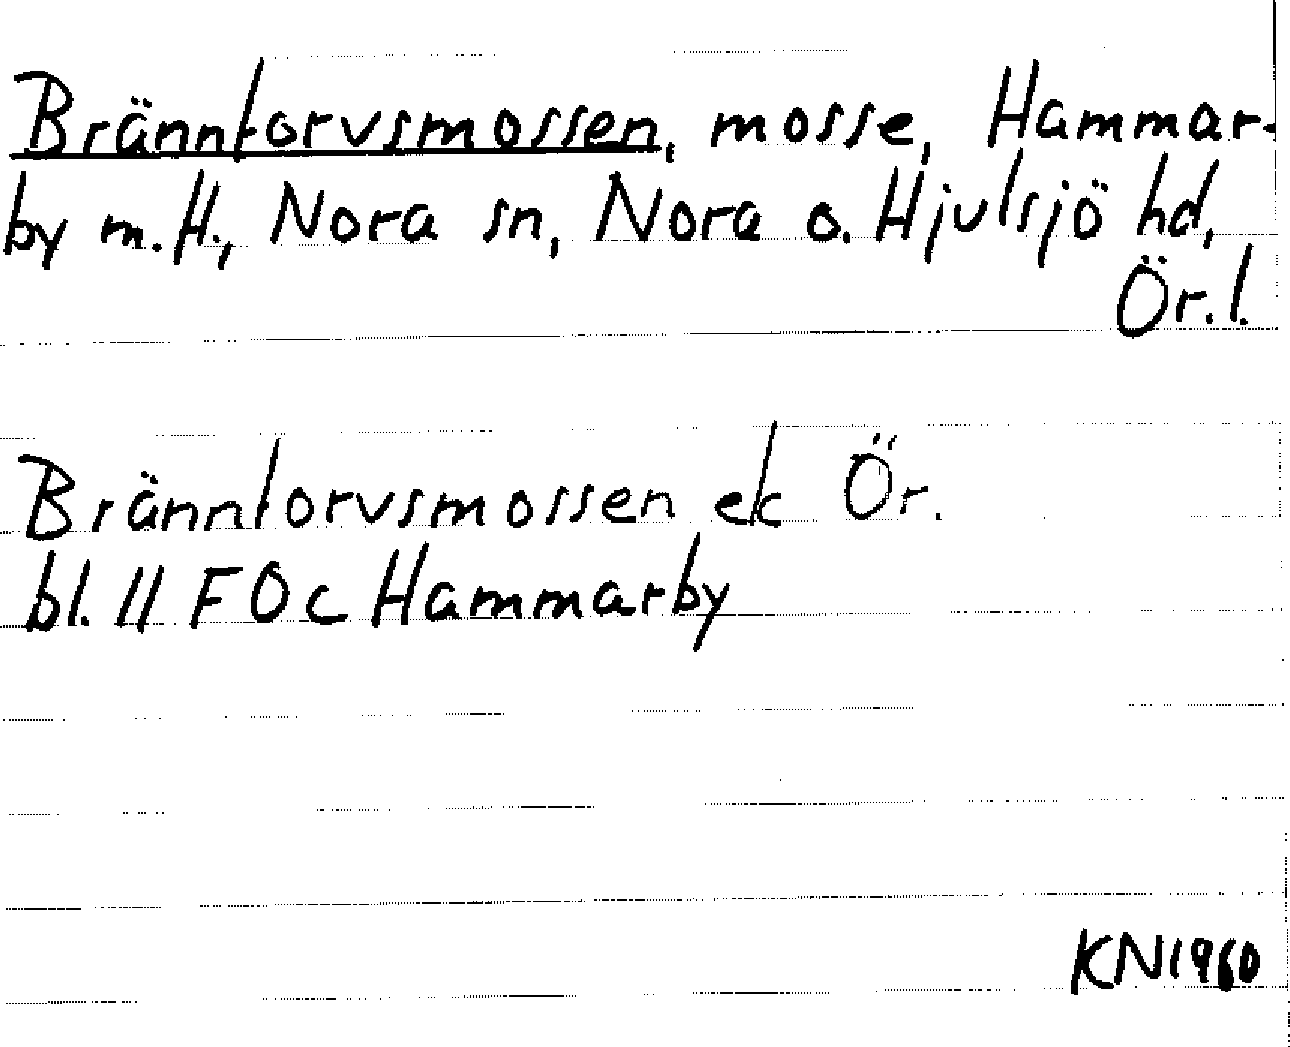 Bränntorvsmossen, mosse, Hammar-
by m.H., Nora sn, Nora o. Hjulsjö hd,
Ör.l.
Bränntorvsmossen ek Ör.
bl. 11 F0c Hammarby
KN1960